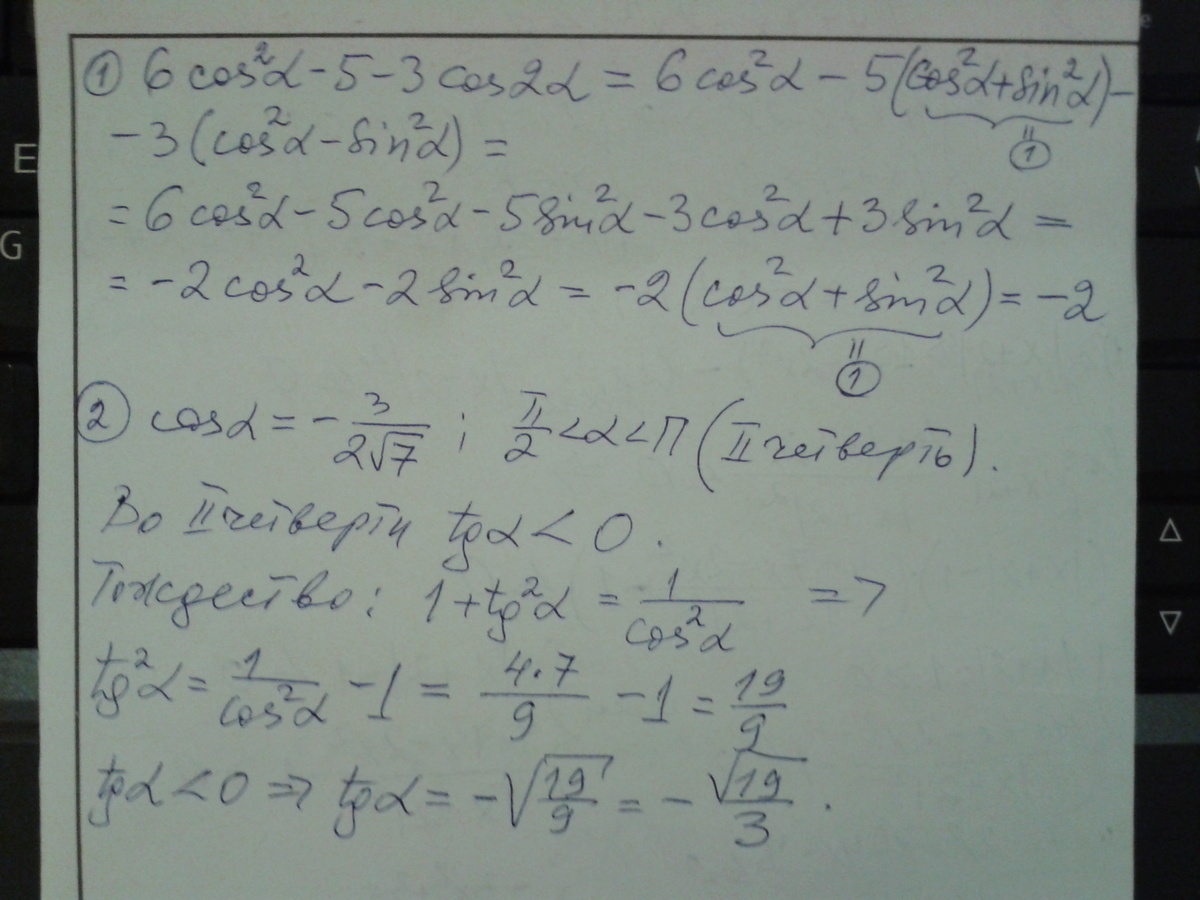 ① 6cos²α - 5 - 3cos2α = 6cos²α - 5(cos²α+sin²α)-
- 3(cos²α-sin²α) =
= 6cos²α - 5cos²α - 5sin²α - 3cos²α + 3sin²α =
= -2cos²α - 2sin²α = -2(cos²α + sin²α) = -2
② cosα = - 3/(2√7) ; π/2 < α < π (II четверть).
Во II четверти tgα < 0.
Тождество: 1 + tg²α = 1/cos²α =>
tg²α = 1/cos²α - 1 = 4·7/9 - 1 = 19/9
tgα < 0 => tgα = -√(19/9) = - √19/3 .
E
G